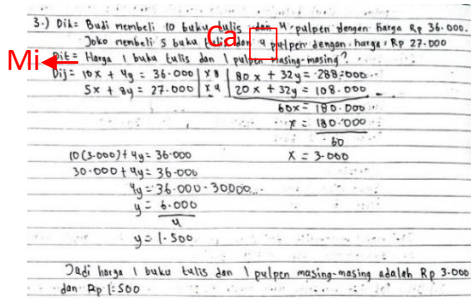 3.) Dik= Budi membeli 10 buku tulis dan 4 pulpen dengan harga Rp 36.000.
Ca
Joko membeli 5 buku tulis dan 4 pulpen dengan harga Rp 27.000
Mi
Dit= Harga 1 buku tulis dan 1 pulpen masing-masing?
Dij= 10x + 4y = 36.000 | x 8 | 80x + 32y = 288.000
5x + 8y = 27.000 | x 4 | 20x + 32y = 108.000
60x = 180.000
x = 180.000
60
10(3.000)+4y= 36.000 x = 3.000
30.000+4y= 36.000
4y= 36.000-30000
y= 6.000
4
y= 1.500
Jadi harga 1 buku tulis dan 1 pulpen masing-masing adalah Rp 3.000
dan Rp 1.500